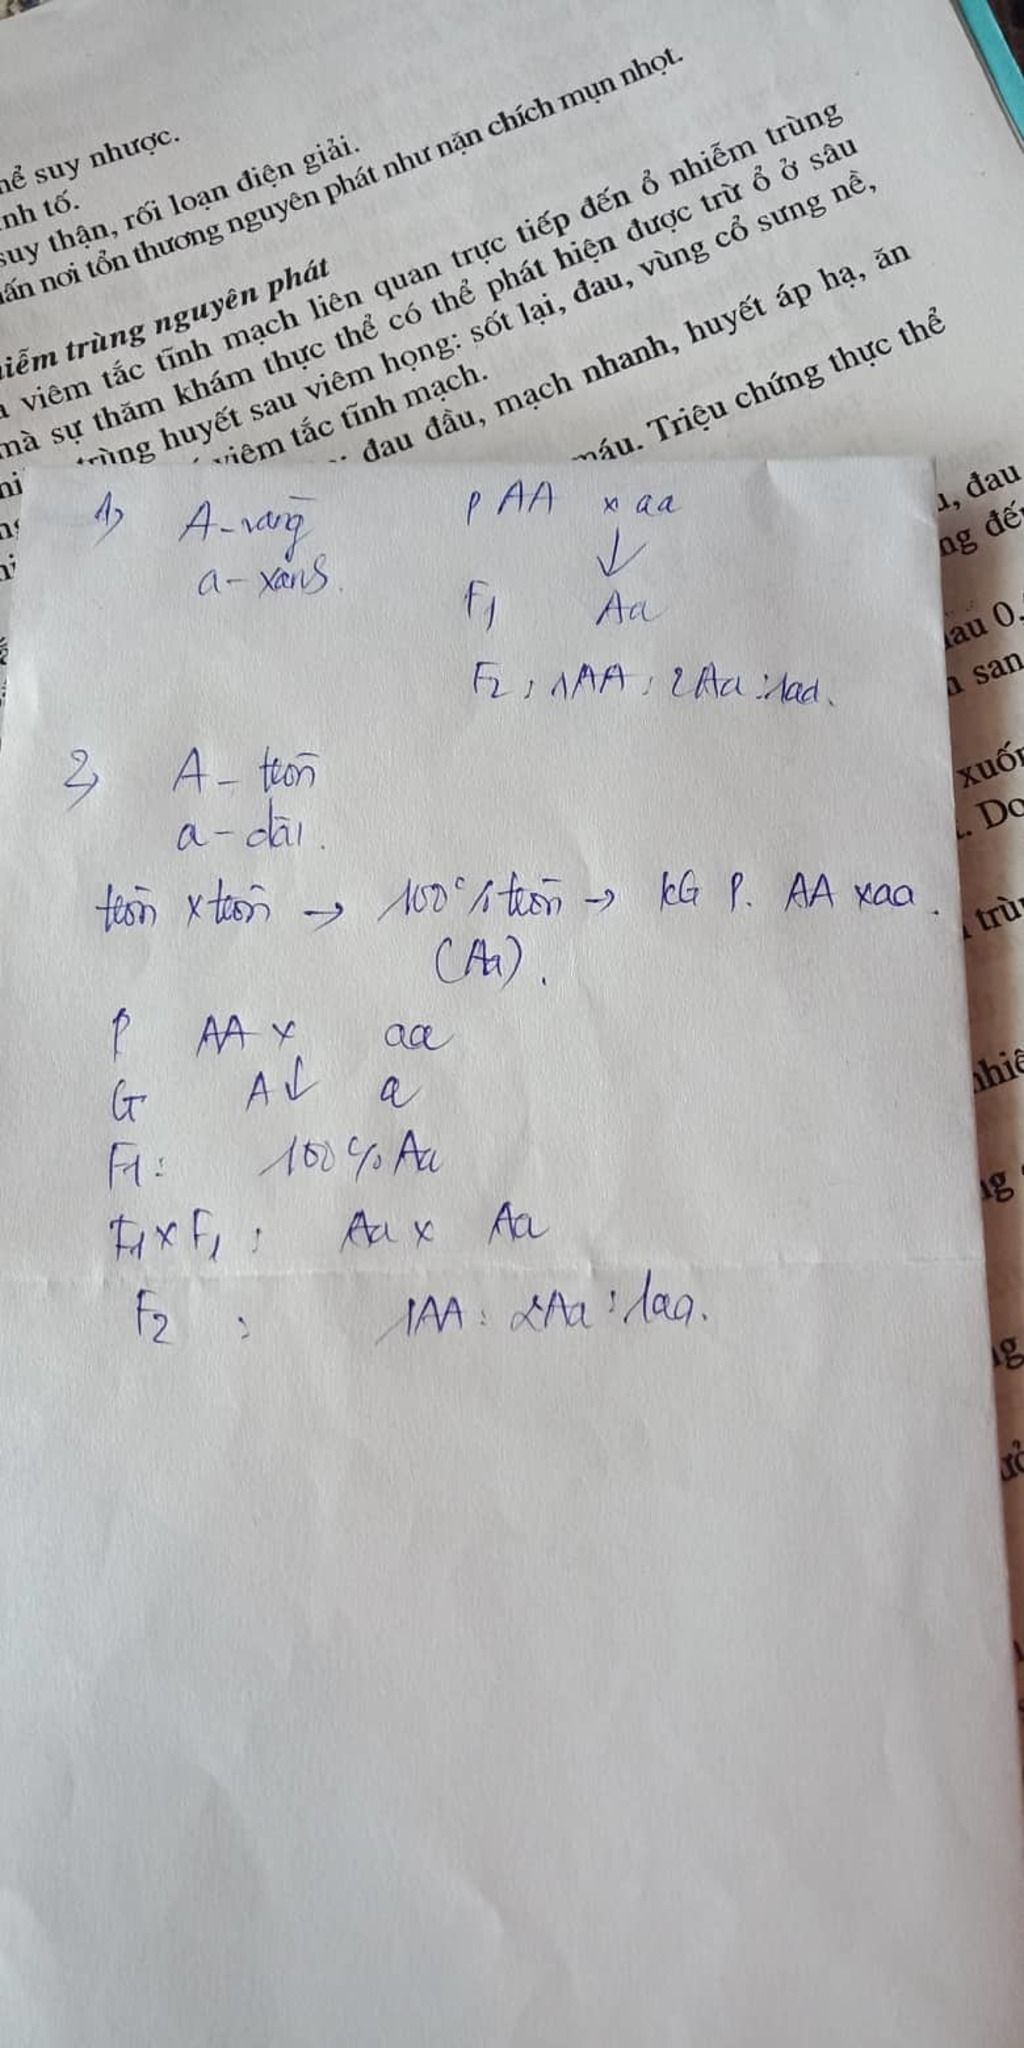 hể suy nhược.
nh tố.
suy thận, rối loạn điện giải.
ấn nơi tổn thương nguyên phát như nặn chích mụn nhọt.
iễm trùng nguyên phát
viêm tắc tĩnh mạch liên quan trực tiếp đến ổ nhiễm trùng
mà sự thăm khám thực thể có thể phát hiện được trừ ổ ở sâu
trùng huyết sau viêm họng: sốt lại, đau, vùng cổ sưng nề,
viêm tắc tĩnh mạch.
đau đầu, mạch nhanh, huyết áp hạ, ăn
máu. Triệu chứng thực thể
, đau
ng đến
au 0,
san
xuốn
. Do
trùn
nhiễ
ng
1, A - vàng P AA x aa
a - xanh. ↓
F1 Aa
F2 : 1AA : 2Aa : 1aa.
2, A - tròn
a - dài.
tròn x tròn → 100% tròn → KG P. AA x aa.
(Aa).
P AA x aa
G A ↓ a
F1 : 100% Aa
F1 x F1 : Aa x Aa
F2 : 1AA : 2Aa : 1aa.